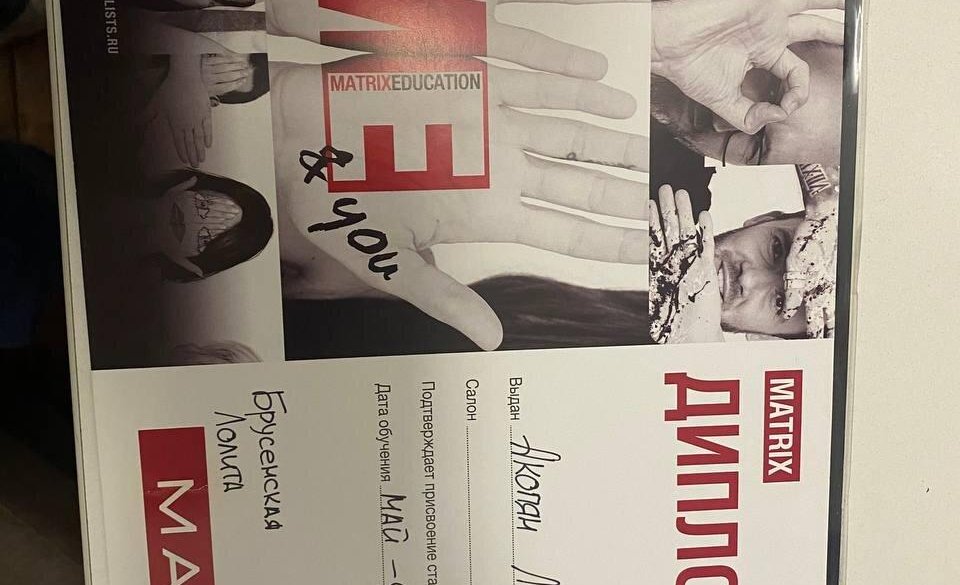 LISTS.RU
MATRIXEDUCATION
ME
& you
MATRIX
ДИПЛО
Выдан Акопян Л
Салон
Подтверждает присвоение ста
Дата обучения МАЙ –
Брусенская
Лолита
MA